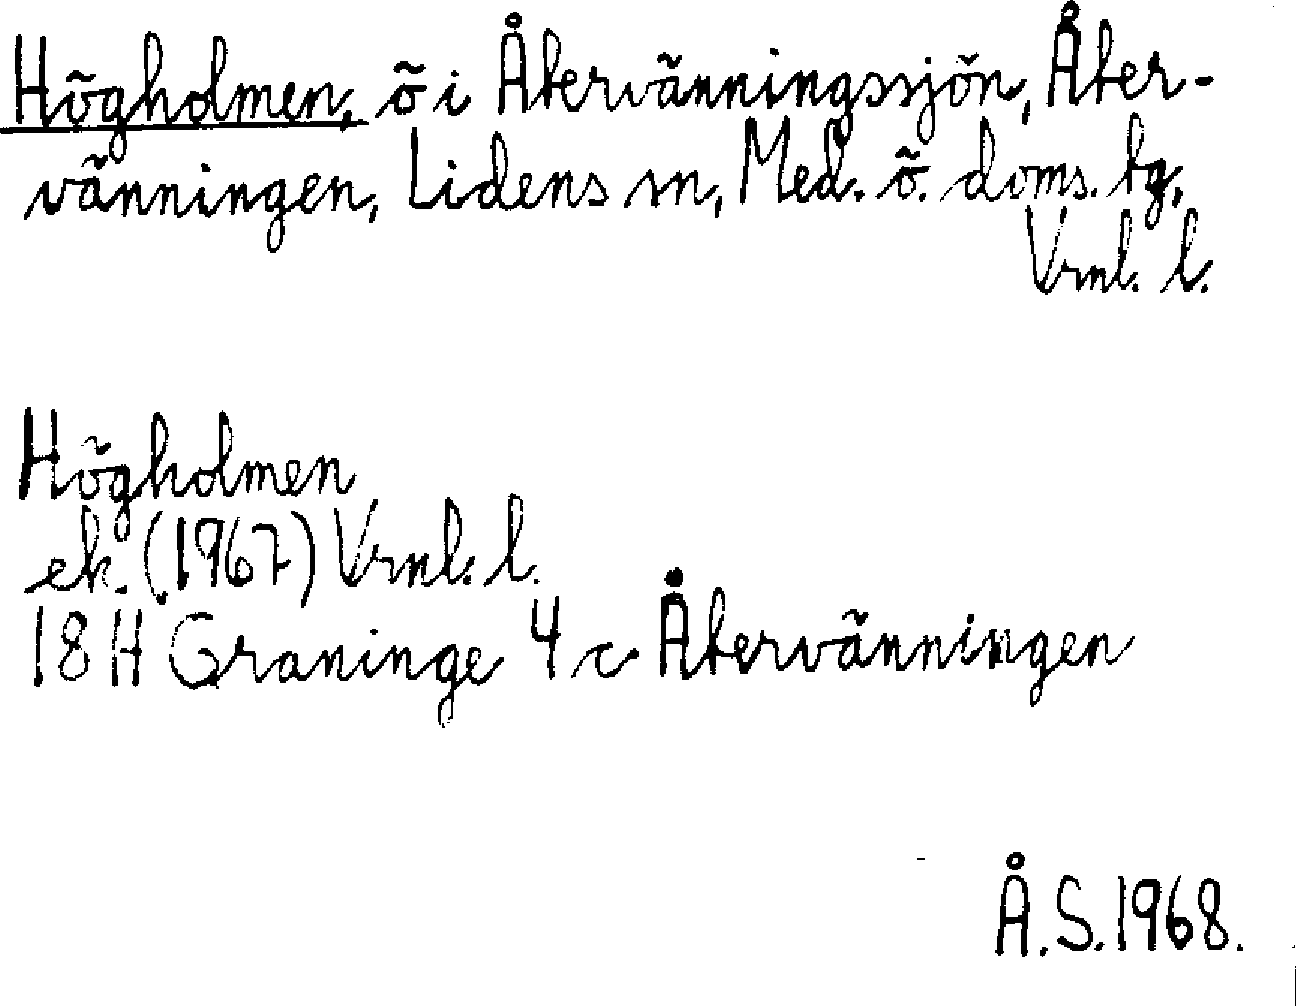 Högholmen, ö i Återvänningssjön, Åter-
vänningen, Lidens sn, Med. ö. doms. tg,
Vrnl. l.
Högholmen
ek. (1967) Vrnl. l.
18H Graninge 4 c Återvänningen
Å.S. 1968.